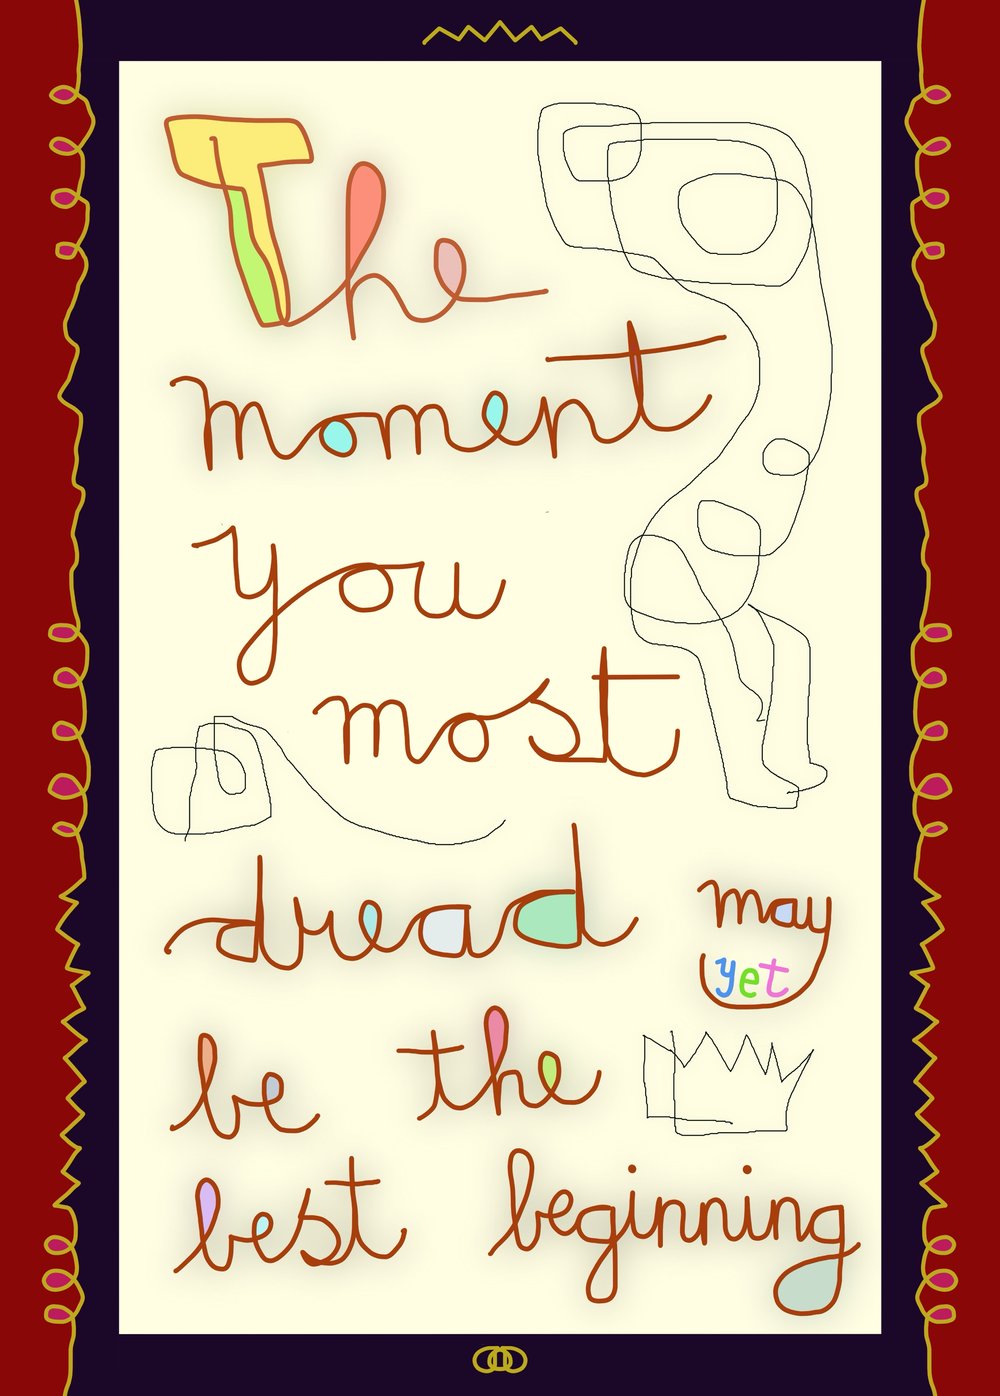 The
moment
you
most
dread
may
yet
be the
best beginning